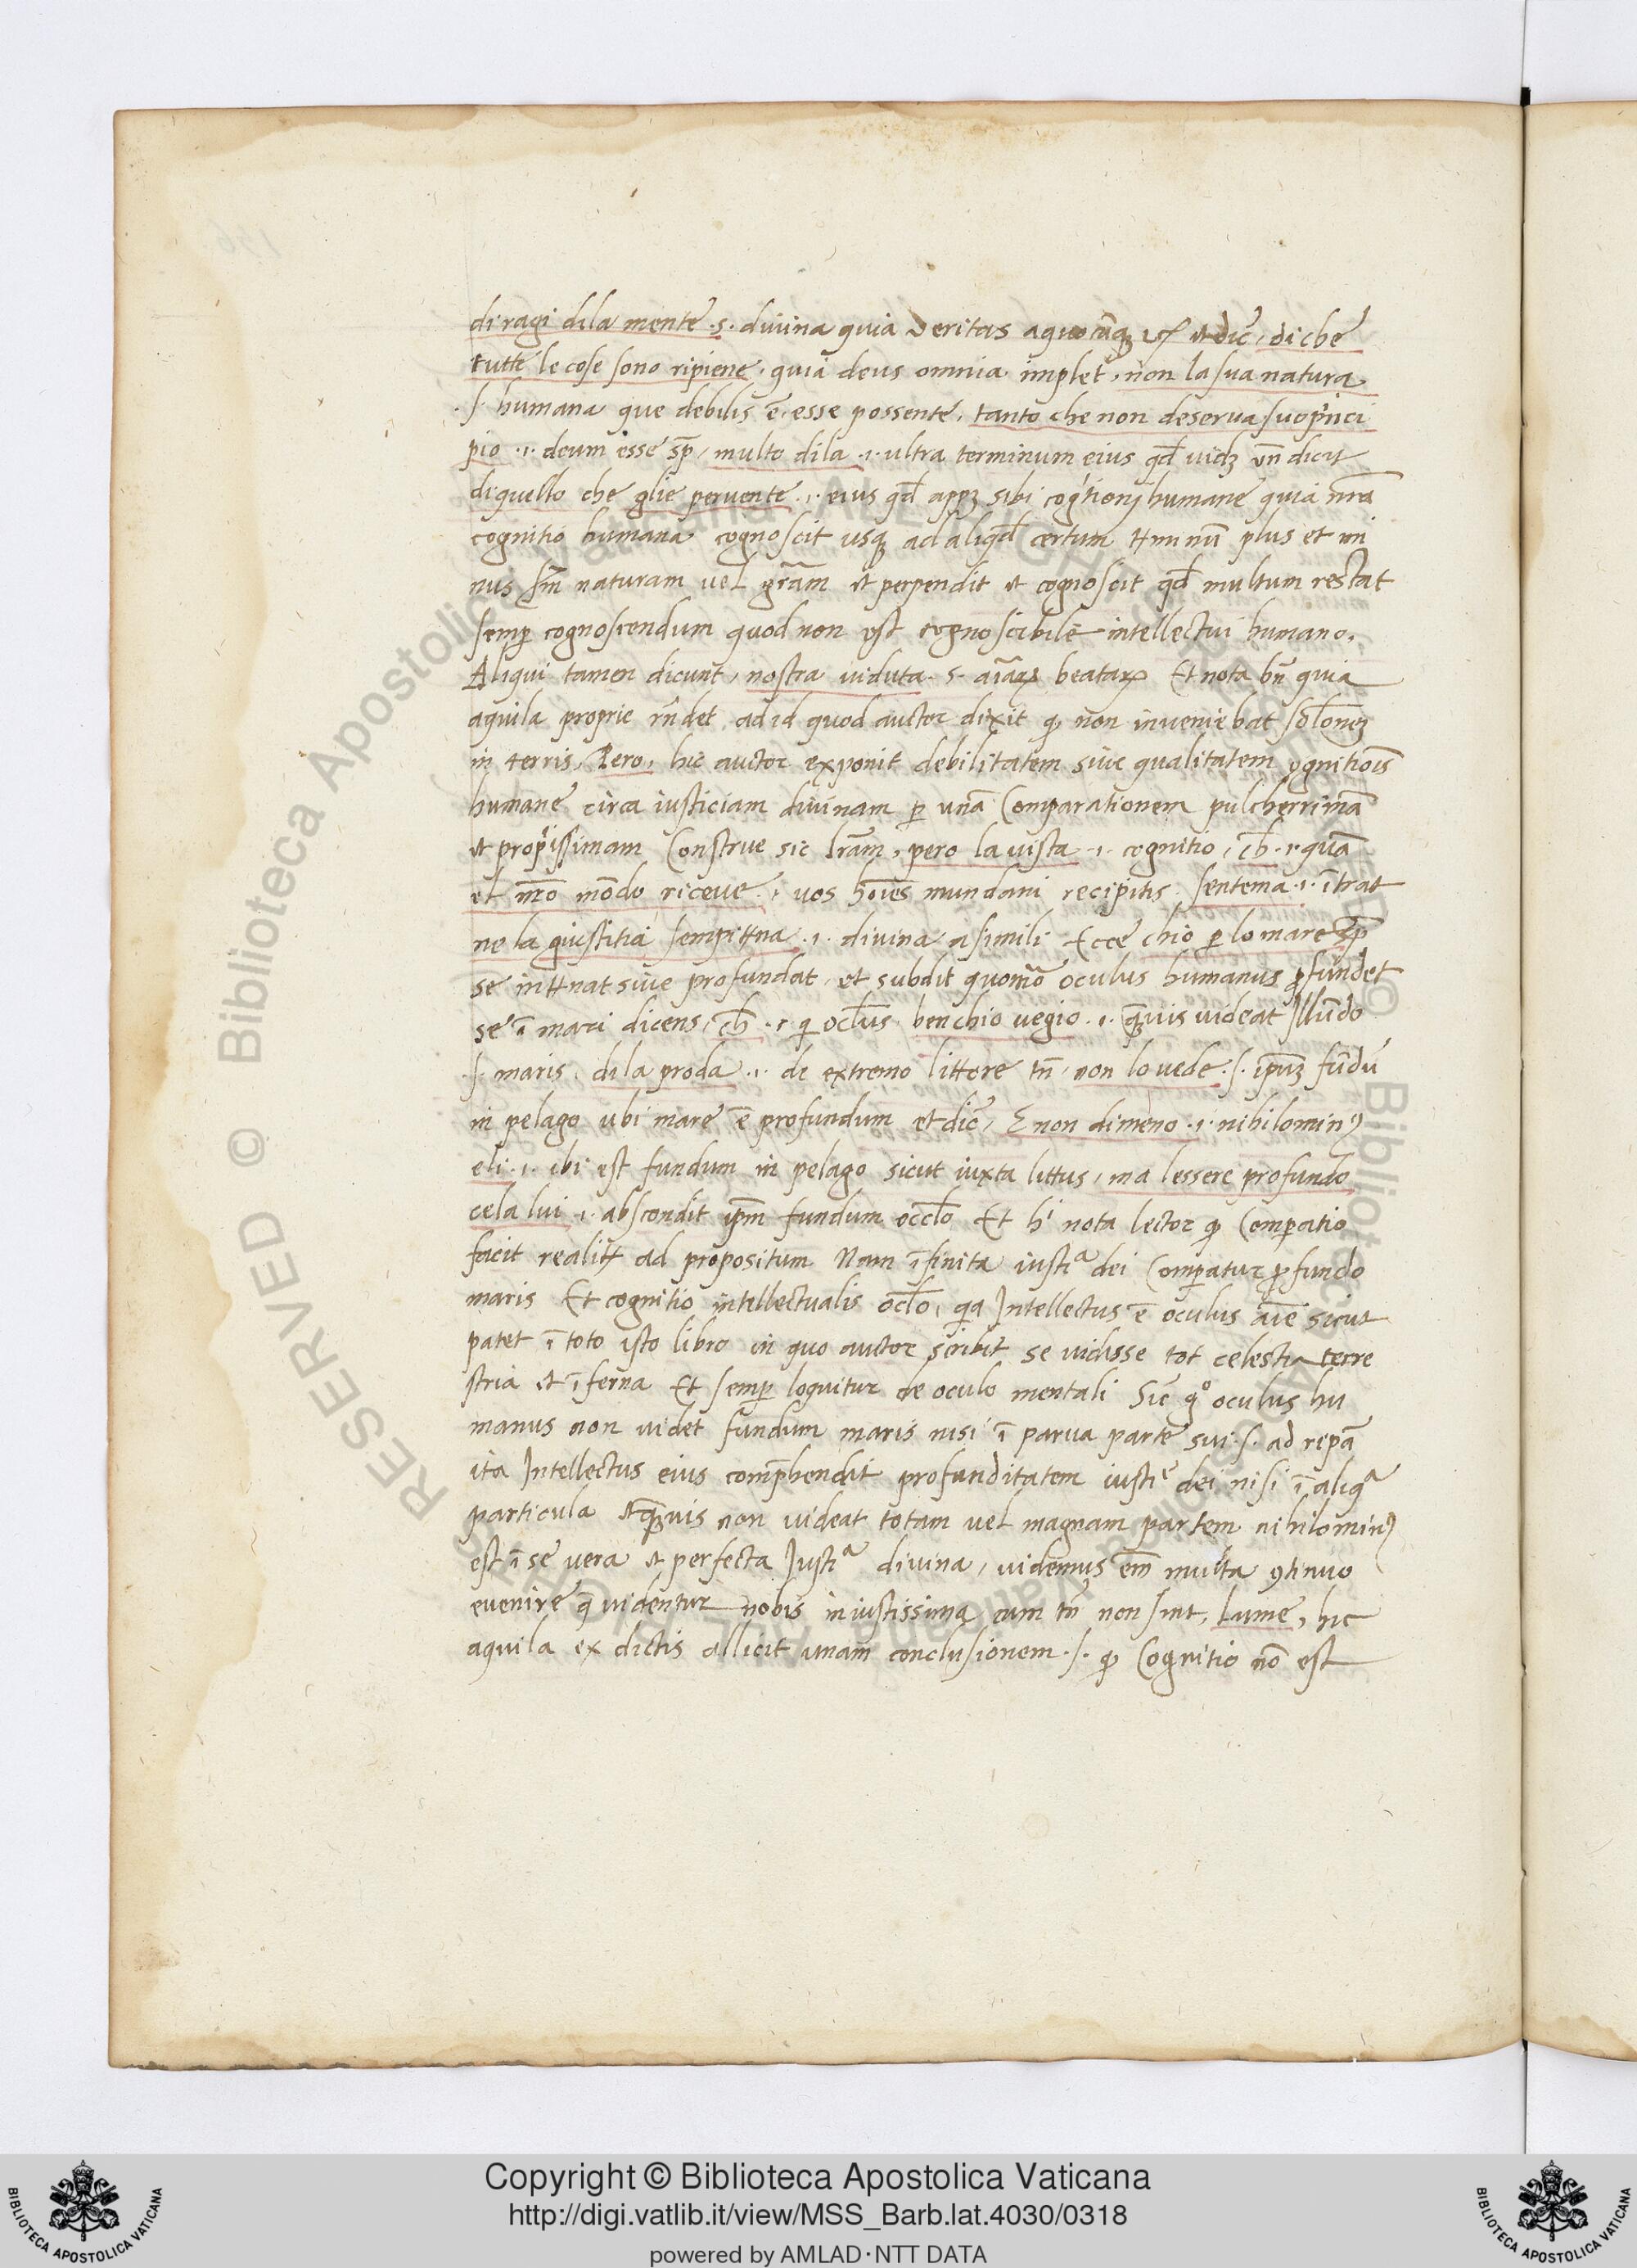 di ragi dila mente .s. divina quia veritas a quocūqȝ ⁊c̄ et dic̄, di che
tutte le cose sono ripiene, quia deus omnia implet, non la sua natura
.s. humana que debilis ē. esse possente, tanto che non deserva suo p̄nci
pio .i. deum esse sp̄, multo dila .i. ultra terminum eius qd̄ vidȝ vn̄ dicit
di quello che glie pervente .i. eius qd̄ appȝ sibi cog̃tionj humane quia nr̄a
cognitio humana cognoscit usqȝ ad aliqd̄ certum tmnū plus et mi
nus sm̄ naturam vel gr̄am et perpendit et cognoscit qd̄ multum restat
semp̱ cognoscendum quod non est cognoscibile intellectui humano.
Aliqui tamen dicunt, nostra viduta .s. aīaꝝ beataꝝ Et nota bn̄ quia
aquila proprie rn̄det ad id quod auctor dixit qꝫ non inveniebat solōneȝ
in terris, Pero, hic auctor exponit debilitatem sive qualitatem ꝯgnitiōis
humane circa iusticiam divinam ꝑ unā Comparationem pulcherrimā
et prop̄issimam Construe sic lr̄am, pero la vista .i. cognitio, ch̄ .i. quā
el nr̄o mōdo riceve .i. vos hoīes mundani recipitis sentema .i. ītrat
ne la giustitia sempitna .i. divina a simili Ecce chio ꝑ lo mare sp̄
se intnat sive profundat, et subdit quomō oculus humanus ꝓfundet
se ī mari dicens, ch̄ .i. qi oclus ben chio vegio .i. qȝvis videat Jllūdo
.s. maris, di la proda .i. de extremo littore tn̄, non lo vede .s. ipm̄ fundū
in pelago ubi mare ē profundum et dic̄, E non dimeno .i. nihilominꝰ
eli .i. ibi est fundum in pelago sicut iuxta littus, ma lessere profundo
cela lui .i. abscondit ip̄m fundum oc̄lo Et hͥ nota lector qꝫ Comꝑatio
facit realit ad propositum Nam īfinita iustiᵃ dei Comꝑatur ꝓfundo
maris Et cognitio intellectualis oc̄lo, qa Jntellectus ē oculus aīe sicut
patet ī toto isto libro in quo auctor scribit se vidisse tot celestia terre
stria et īferna Et semp̱ loquitur de oculo mentali Sic gº oculus hu
manus non videt fundum maris nisi ī parva parte sui .s. ad ripā
ita Jntellectus eius comp̄hendit profunditatem iustiͤ dei nisi ī aliqᵃ
particula et qȝvis non videat totam vel magnam partem nihilominꝰ
est ī se vera et perfecta Justiᵃ divina, videmus em̄ multa ꝯtinuo
evenire q̄ videntur nobis iniustissima cum tn̄ non sint, Lume, hic
aquila ex dictis allicit unam conclusionem .s. qꝫ Cognitio nō est
Copyright © Biblioteca Apostolica Vaticana
http://digi.vatlib.it/view/MSS_Barb.lat.4030/0318
powered by AMLAD·NTT DATA